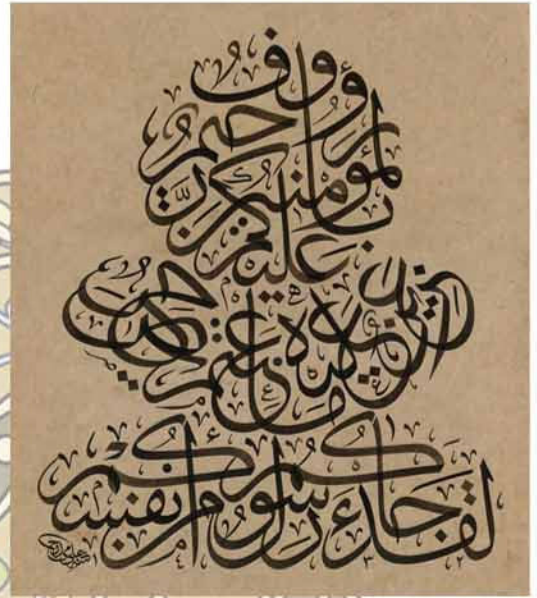 لقد جاءكم رسول من أنفسكم
عزيز عليه ما عنتم حريص
عليكم
بالمؤمنين
رؤوف رحيم